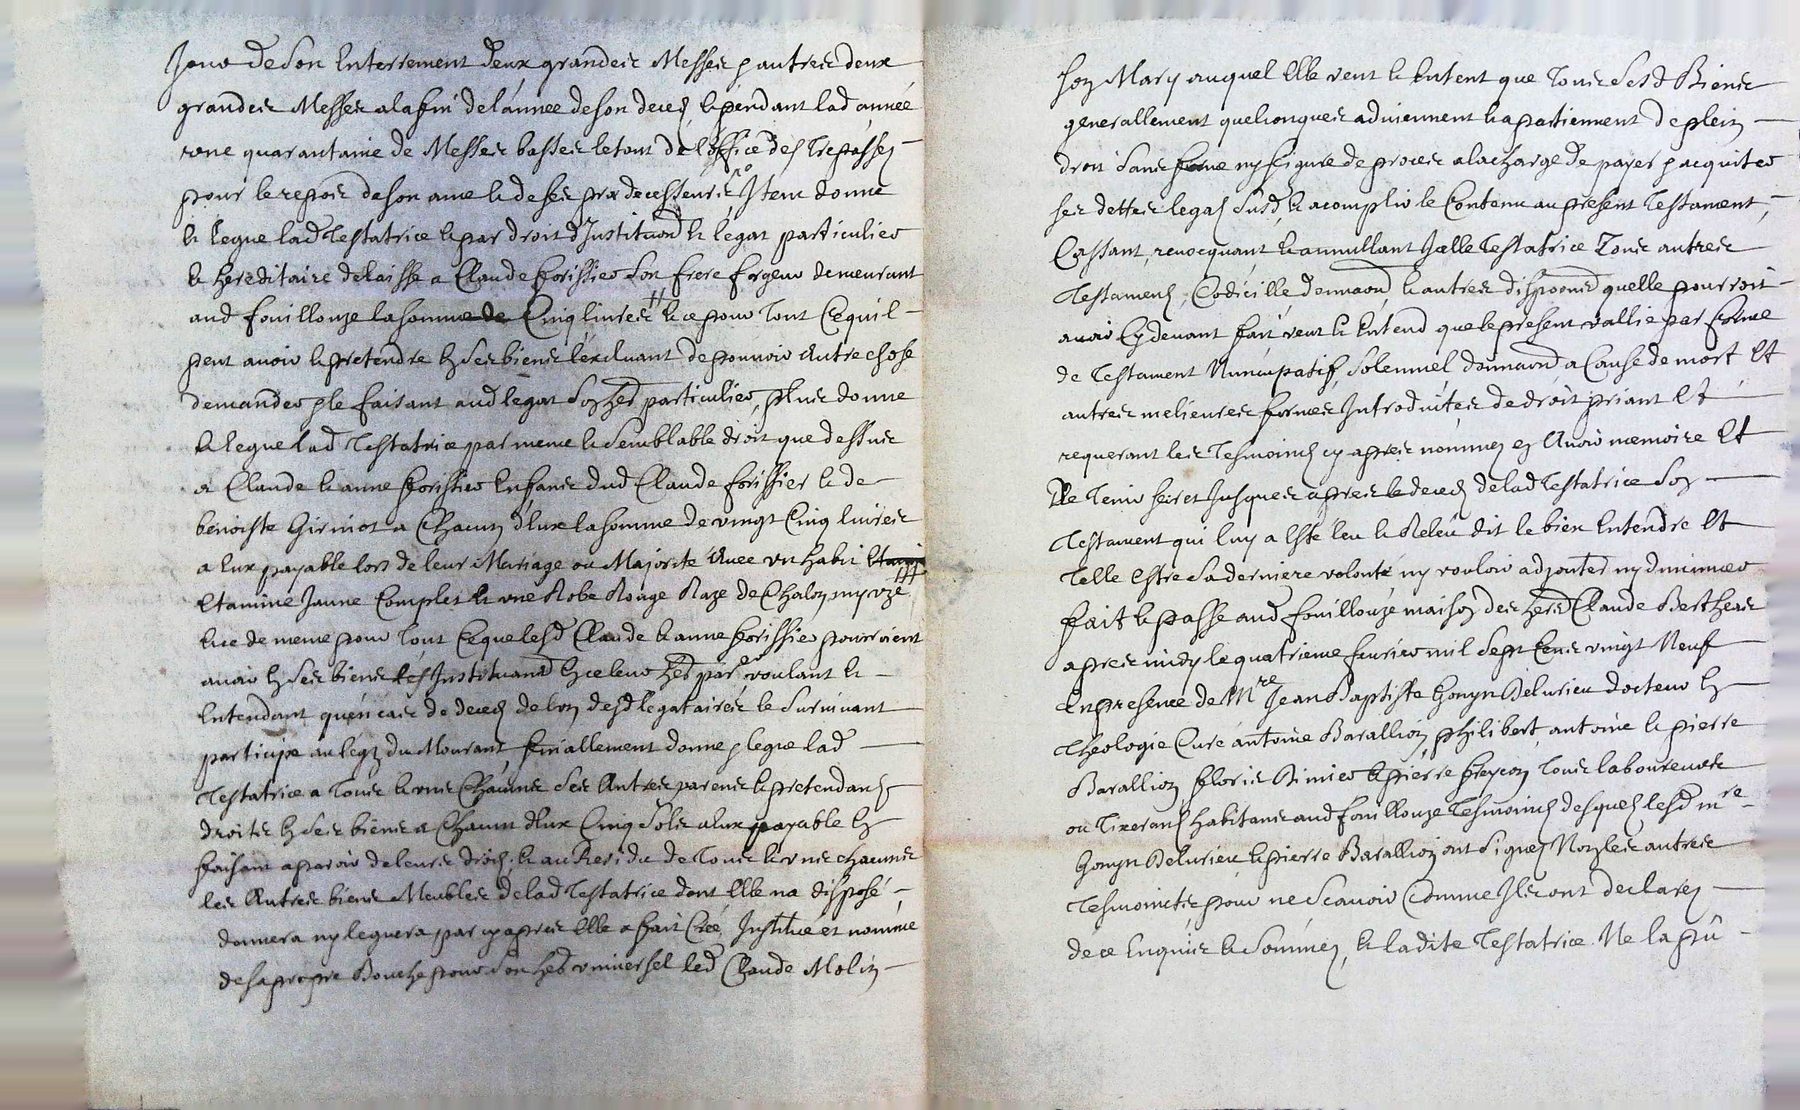 Jour de son Enterrement deux grandes Messes & autres deux
grandes Messes a la fin de l'année de son decez, & pendant lad année
une quarantaine de Messes basses le tout de l'office des Trepassez
pour le repos de son ame & de ses predecesseurs Item donne
& legue lad Testatrice & par droit d'Instituaõn & legat particulier
& hereditaire delaisse a Claude forissier son frere forgeur demeurant
aud fouillouze la somme de Cinq livres & ce pour Tout Ce quil
peut avoir & pretendre en ses biens l'excluant de pouvoir Autre chose
demander & le faisant aud legat son her particulier, plus donne
& legue lad Testatrice par meme & semblable droit que dessus
a Claude & anne forissier Enfans dud Claude forissier & de
benoiste Girinot a Chacun d'Eux la somme de vingt Cinq livres
a Eux payable lors de leur Mariage ou Majorité Avec un habit
Etamine Jaune Complet & une Robe Rouge Raze de Chalon my uzé
& ce de meme pour Tout Ce que lesd Claude & anne forissier pourroient
avoir en ses biens les Instituant en ce leur her par voulant &
Entendant qu'en cas de decez de l'un desd legataires le survivant
participe au legz du Mourant, finallement donne & legue lad
Testatrice a Tous & uns Chacuns ses Autres parens & pretendans
droits en ses biens a Chacun d'Eux Cinq sols a Eux payable en
faisant aparoir de leurs droits, & au Residu de Tous & uns chacuns
les Autres biens Meubles de lad Testatrice dont Elle na disposé
donnera ny leguera par cy apres Elle a fait Créé, Institue et nomme
de sa propre Bouche pour son her universel led Claude Molin
son Mary auquel Elle veut & Entent que Tous sesd Biens
generallement quelconques adviennent & apartiennent de plein
droit sans forme ny figure de proces a la charge de payer & acquiter
ses dettes legaz susd, & acomplir le Contenu au present Testament,
Cassant, revocquant & annullant Jcelle Testatrice Tous autres
Testamens, Codicille donnaon & autres disposons quelle pourroit
avoir Cy devant fait veut & Entend que le present vallie par forme
de Testament Nuncupatif, solemnel donnaon a Cause de mort Et
autres melieures formes Introduites de droit priant Et
requerant les Tesmoins cy apres nommez en Avoir memoire Et
Le Tenir secret Jusques apres le decez de lad Testatrice son
Testament qui luy a Esté leu & Releu dit le bien Entendre Et
Telle Estre sa derniere volonté ny vouloir adjouter ny diminuer
fait & passé aud fouillouze maison des hers Claude Bertheas
apres midy le quatrieme fevrier mil sept Cens vingt Neuf
En presence de Mre Jean Baptiste Gonyn Delurieu docteur en
Theologie Curé antoine Barallion, philibert, antoine & pierre
Barallion floris Rimier & pierre freycon Tous laboureurs
ou Tixerans habitans aud fouillouze Tesmoins desquels lesd mre
Gonyn Delurieu & pierre Barallion ont signez Non les autres
Tesmoints pour ne scavoir Comme Jls ont declarez
de ce Enquis & sommez, & ladite Testatrice Ne la pû